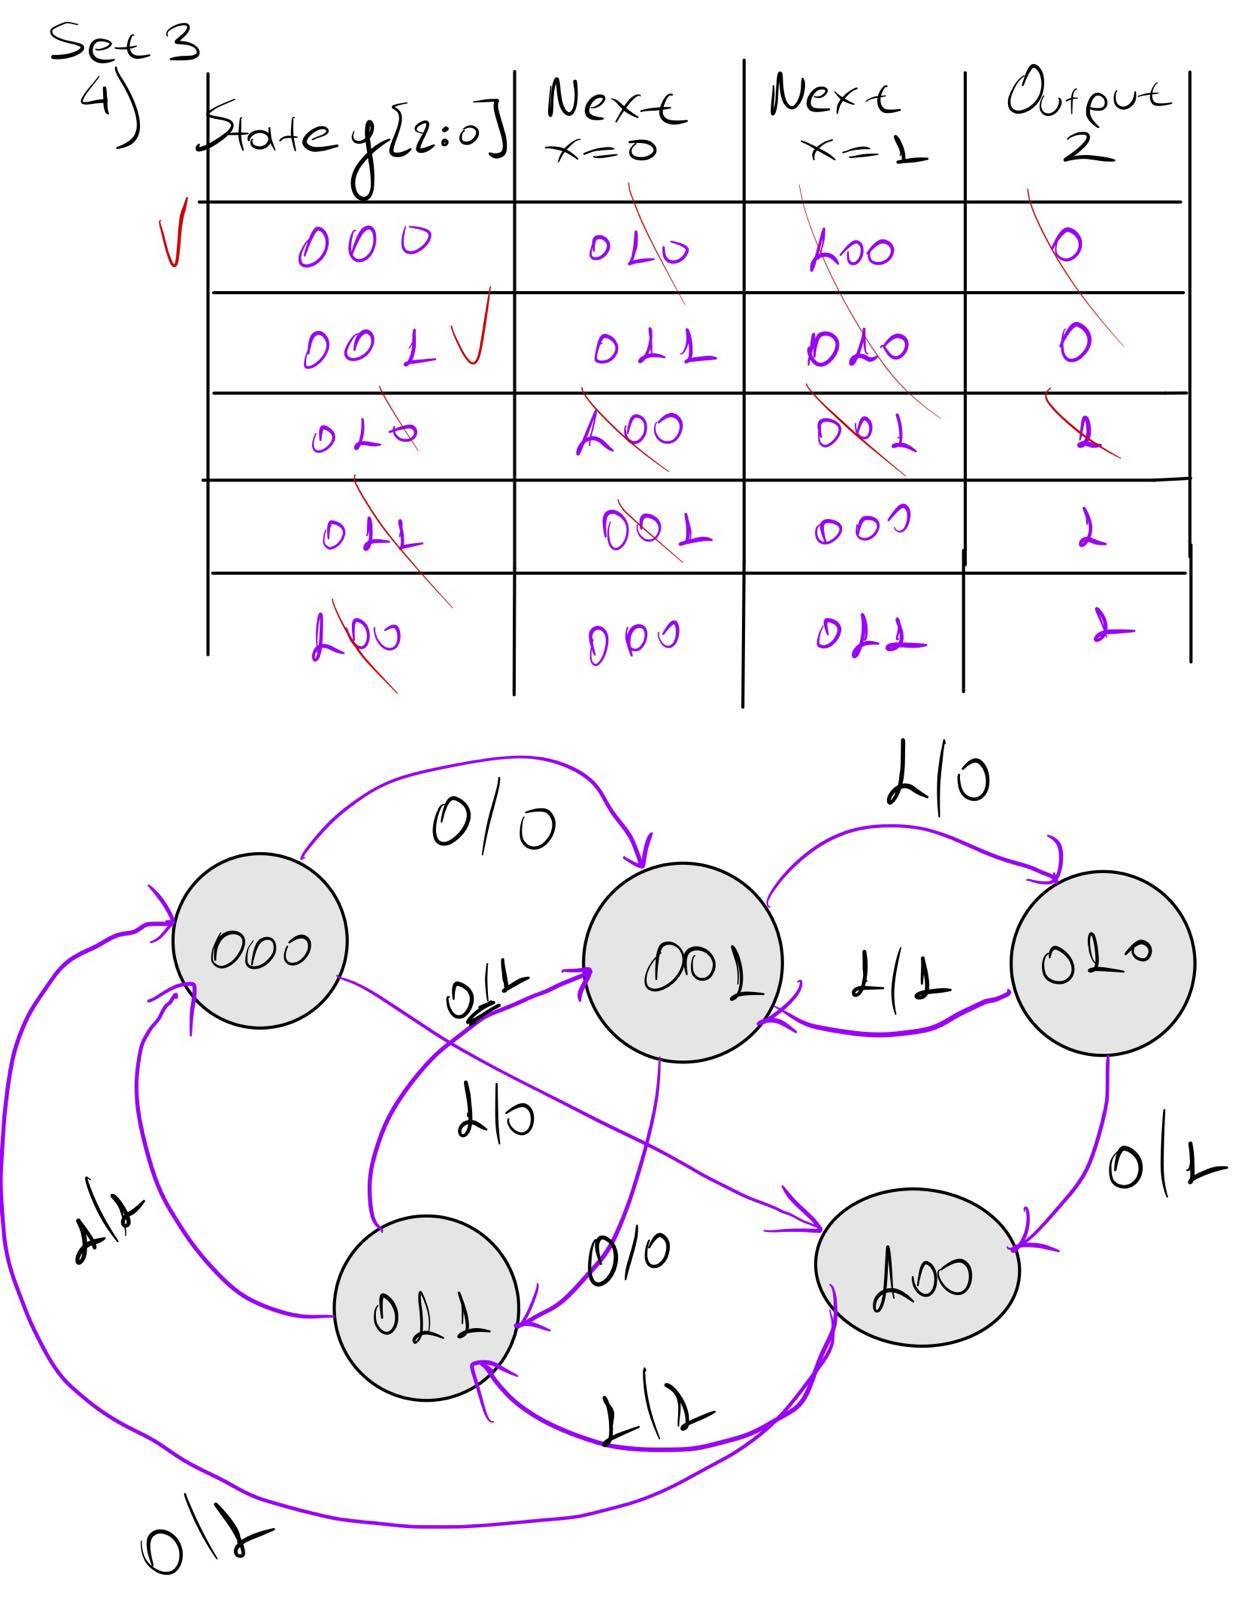 Set 3
4)
State y[2:0] Next x=0 Next x=1 Output 2
000 010 100 0
001 011 010 0
010 100 001 1
011 001 000 1
100 000 011 1
1/0
0/0
000 001 010
0/1 1/1
1/0
0/1
1/1
0/0
011 100
1/1
0/1